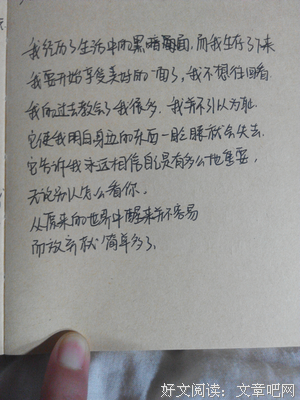 我经历了生活中的黑暗面,而我生存了下来
我要开始享受美好的一面了,我不想往回看
我的过去教会了我很多,我并不引以为耻.
它使我明白身边的东西一眨眼就会失去.
它告诉我永远相信自己是有多么地重要,
无论别人怎么看你.
从原来的世界中醒来并不容易
而放弃就简单多了.
好文阅读:文章吧网